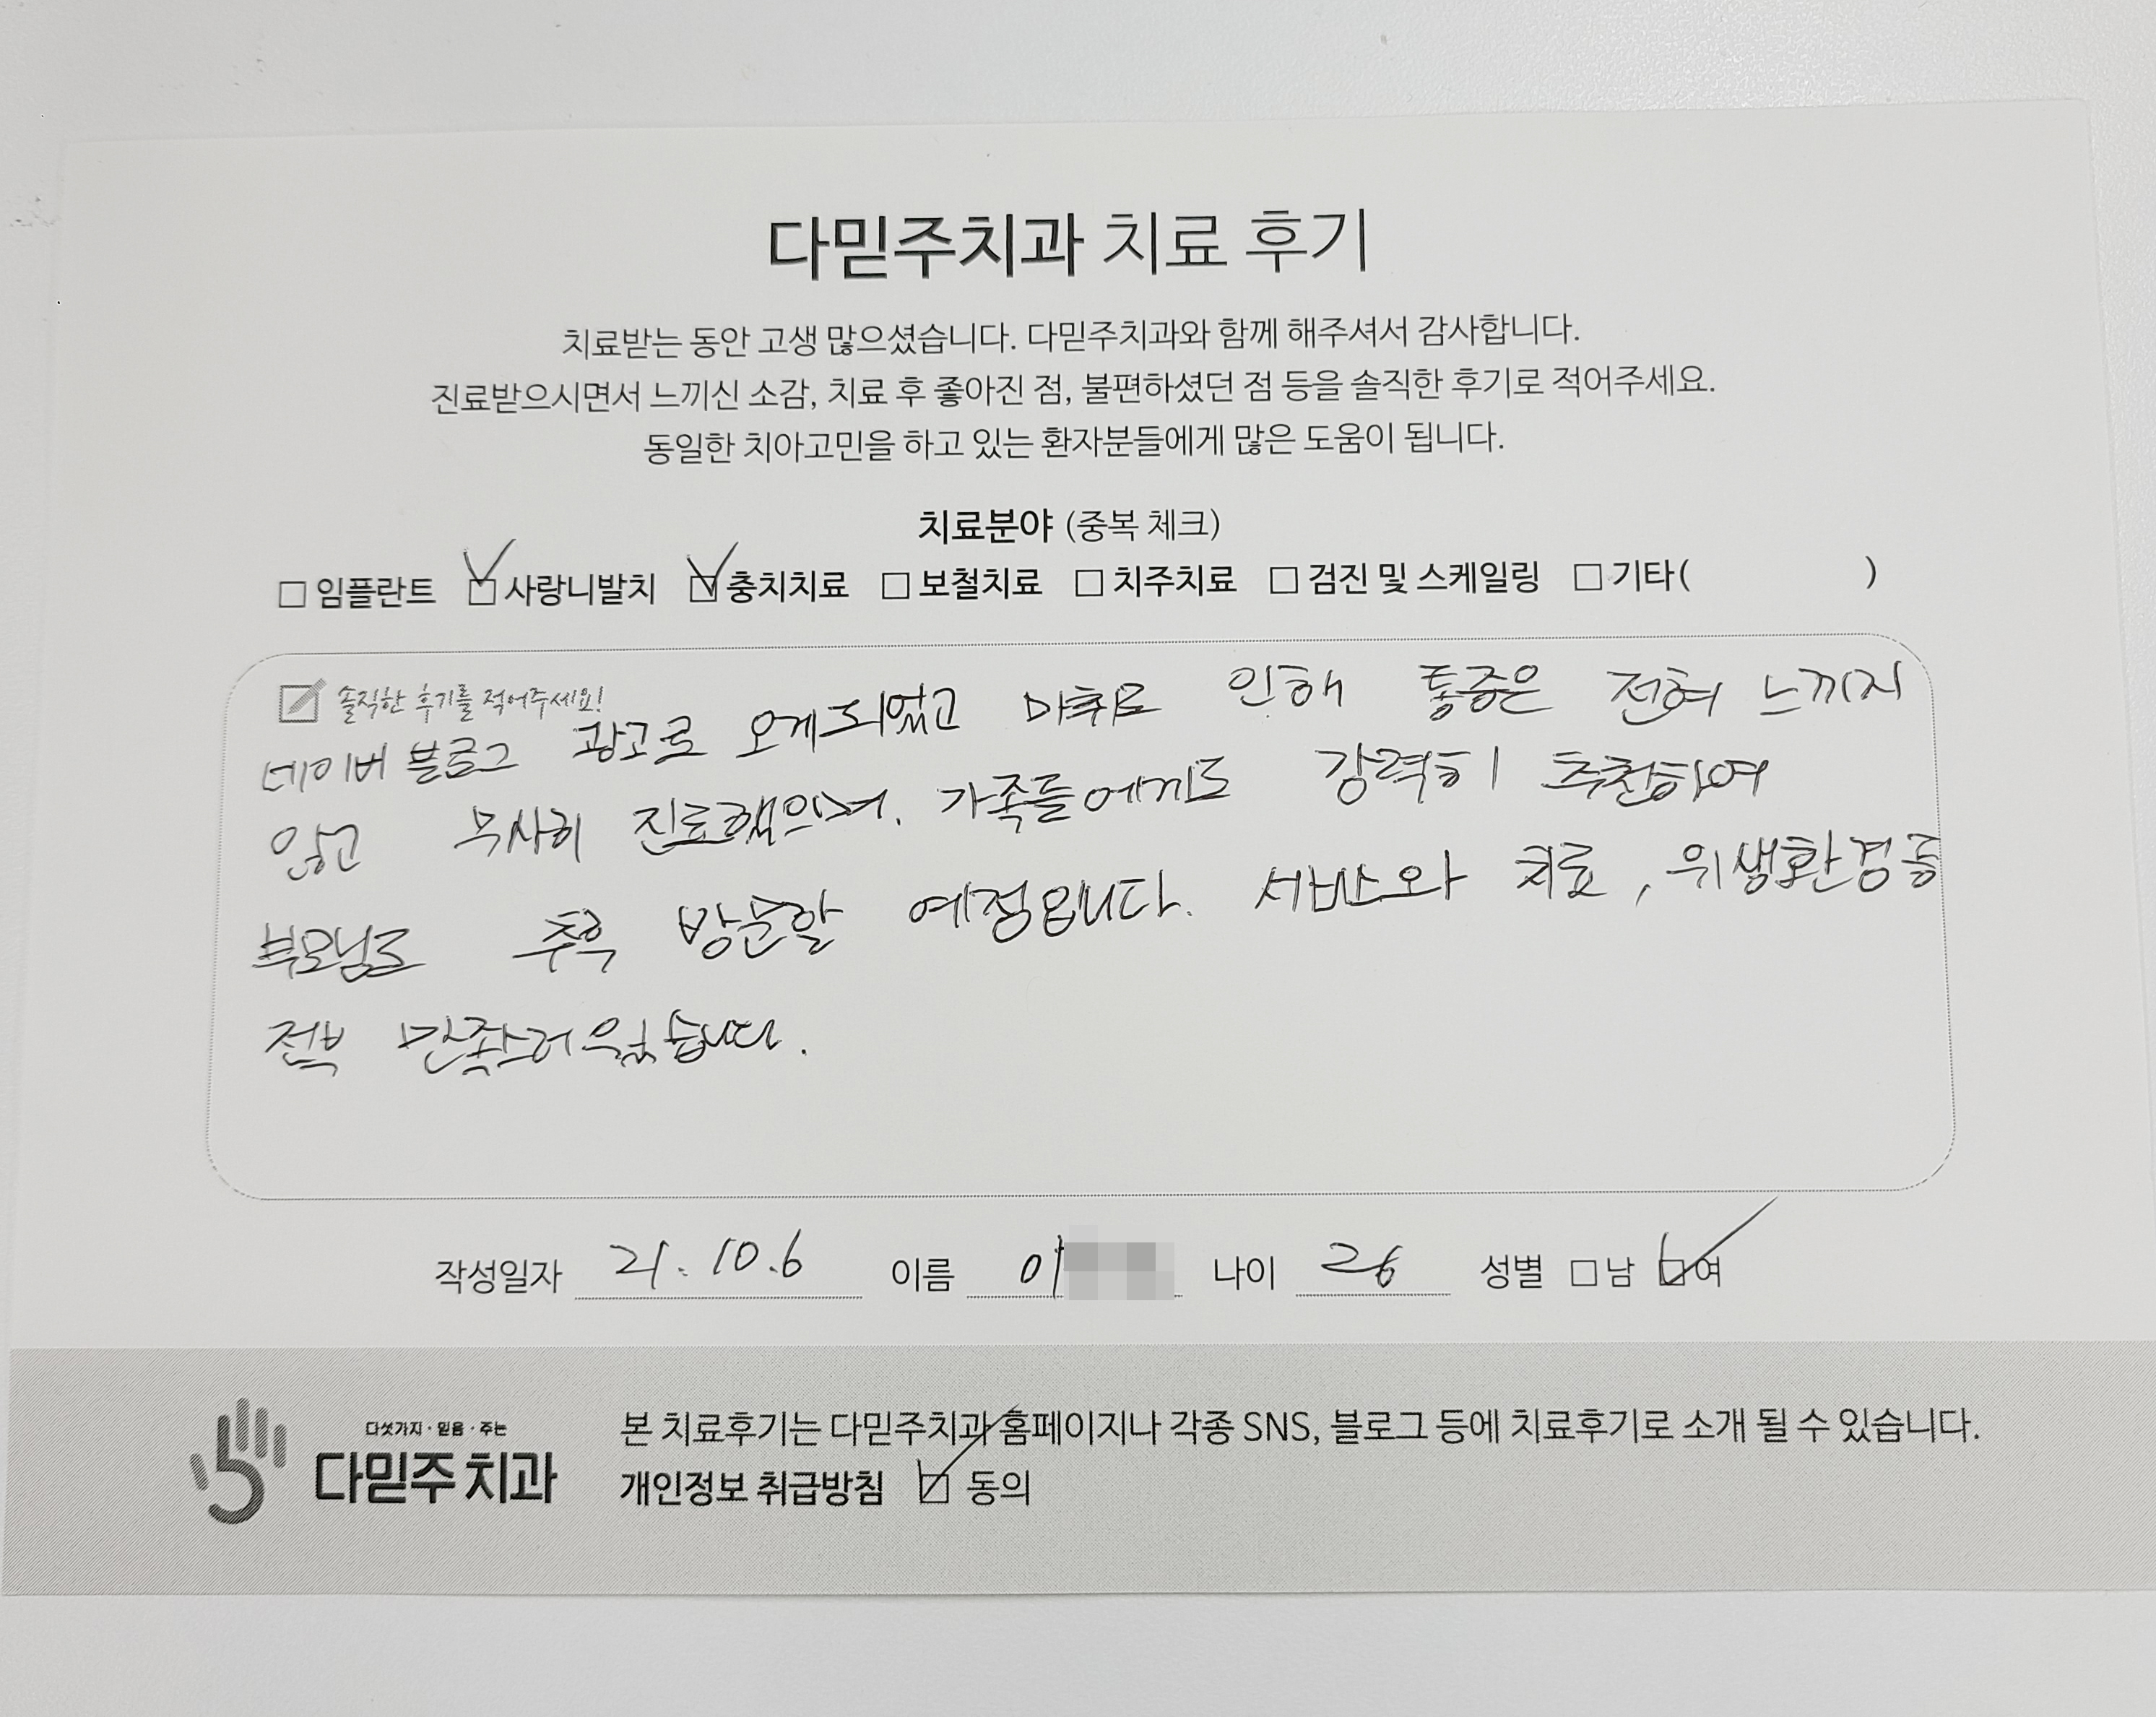 다믿주치과 치료 후기
치료받는 동안 고생 많으셨습니다. 다믿주치과와 함께 해주셔서 감사합니다.
진료받으시면서 느끼신 소감, 치료 후 좋아진 점, 불편하셨던 점 등을 솔직한 후기로 적어주세요.
동일한 치아고민을 하고 있는 환자분들에게 많은 도움이 됩니다.
치료분야 (중복 체크)
□ 임플란트 ☑ 사랑니발치 ☑ 충치치료 □ 보철치료 □ 치주치료 □ 검진 및 스케일링 □ 기타( )
솔직한 후기를 적어주세요!
네이버 블로그 광고로 오게되었고 마취로 인해 통증은 전혀 느끼지
않고 무사히 진료했으며. 가족들에게도 강력히 추천하여
부모님도 추후 방문할 예정입니다. 서비스와 치료, 위생환경등
전부 만족스러웠습니다.
작성일자 21. 10.6 이름 이 나이 26 성별 □ 남 ☑ 여
다섯가지·믿음·주는
다믿주 치과
본 치료후기는 다믿주치과 홈페이지나 각종 SNS, 블로그 등에 치료후기로 소개 될 수 있습니다.
개인정보 취급방침 ☑ 동의